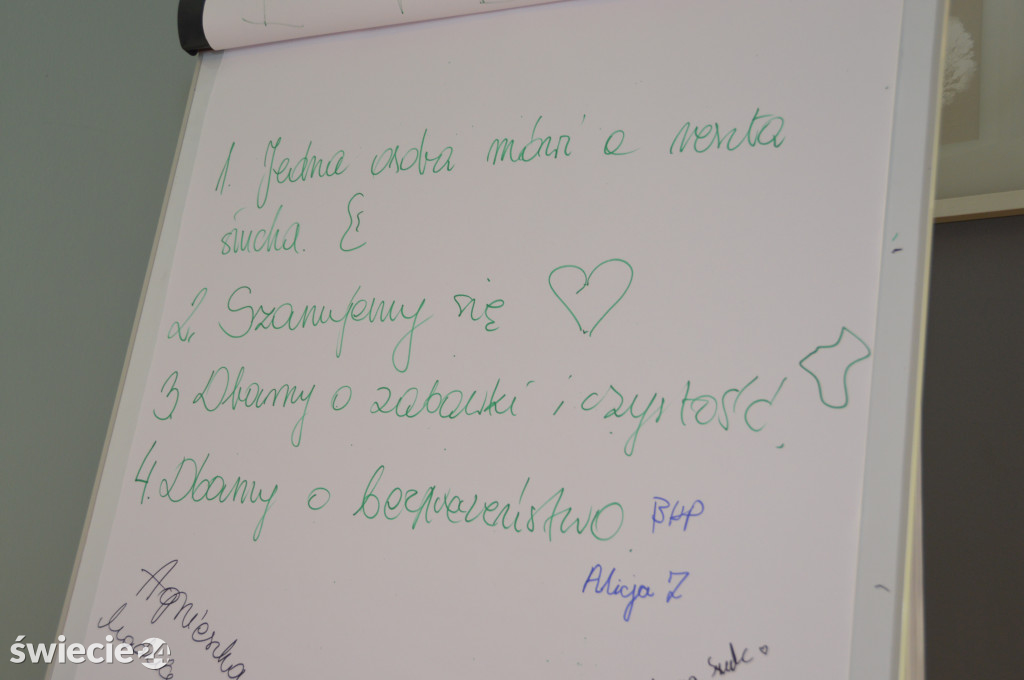 1. Jedna osoba mówi a reszta
słucha.
2. Szanujemy się
3. Dbamy o zabawki i czystość.
4. Dbamy o bezpieczeństwo. BHP
Alicja Z
Agnieszka
świecie24